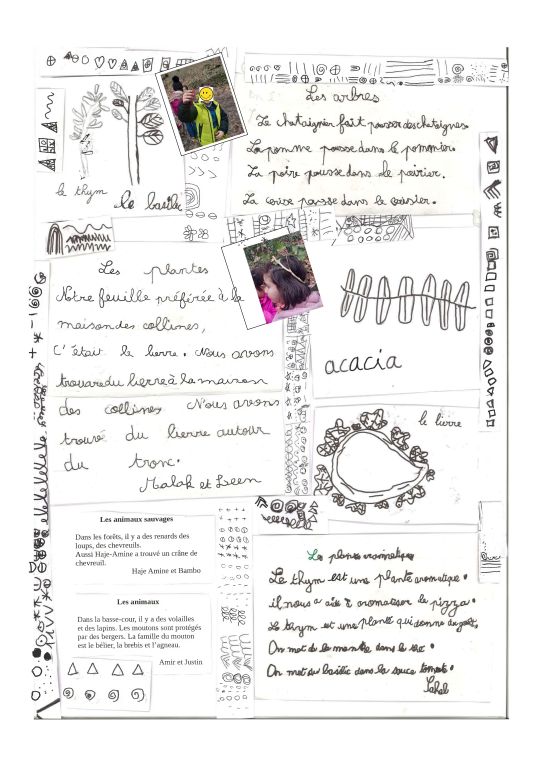 le thym
le basilic
Les arbres
Le chataignier fait pousser des chataignes.
La pomme pousse dans le pommier.
La poire pousse dans le poirier.
La cerise pousse dans le cerisier.
Les plantes
Notre feuille préférée à la
maison des collines,
C'était le lierre. Nous avons
trouvé du lierre à la maison
des collines Nous avons
trouvé du lierre autour
du tronc.
Malak et Leen
acacia
le lierre
Les animaux sauvages
Dans les forêts, il y a des renards des
loups, des chevreuils.
Aussi Haje-Amine a trouvé un crâne de
chevreuil.
Haje Amine et Bambo
Les animaux
Dans la basse-cour, il y a des volailles
et des lapins. Les moutons sont protégés
par des bergers. La famille du mouton
est le bélier, la brebis et l'agneau.
Amir et Justin
Les plantes aromatiques
Le thym est une plante aromatique.
il nous a aidé à aromatiser la pizza.
Le thym est une plante qui donne du goût.
On met de la menthe dans le thé.
On met du basilic dans la sauce tomate.